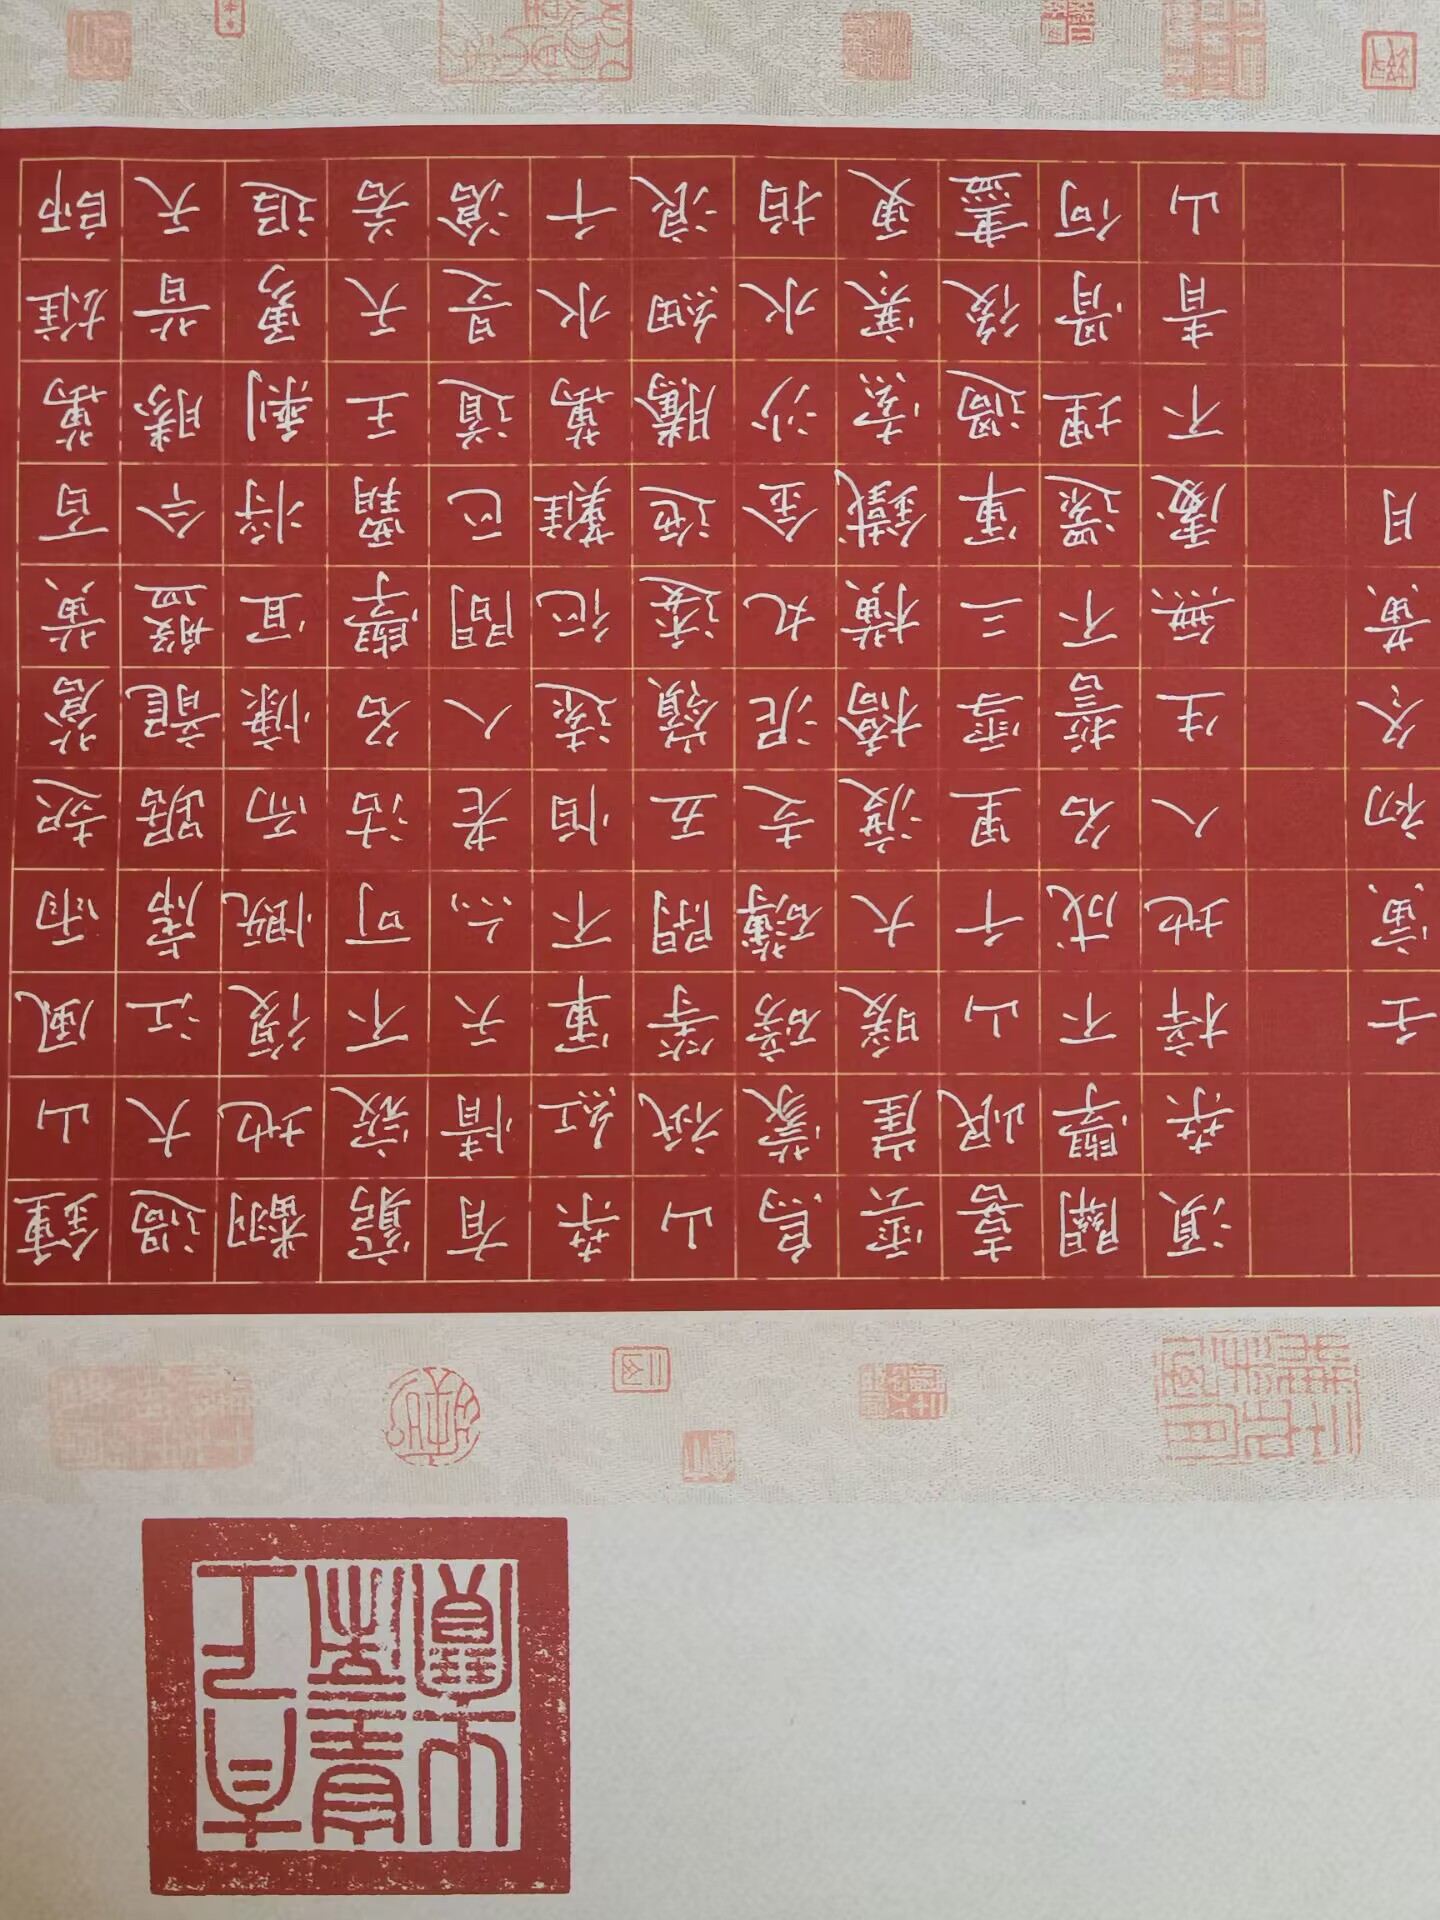 鍾山風雨起蒼黃百萬雄師
過大江虎踞龍盤今勝昔天
翻地覆慨而慷宜將剩勇追
窮寇不可沽名學霸王天若
有情天亦老人間正道是滄
桑紅軍不怕遠征難萬水千
山祇等閒五嶺逶迤騰細浪
烏蒙磅礴走泥丸金沙水拍
雲崖暖大渡橋橫鐵索寒更
喜岷山千里雪三軍過後盡
關學不成名誓不還埋骨何
須桑梓地人生無處不青山
壬寅初冬黃月